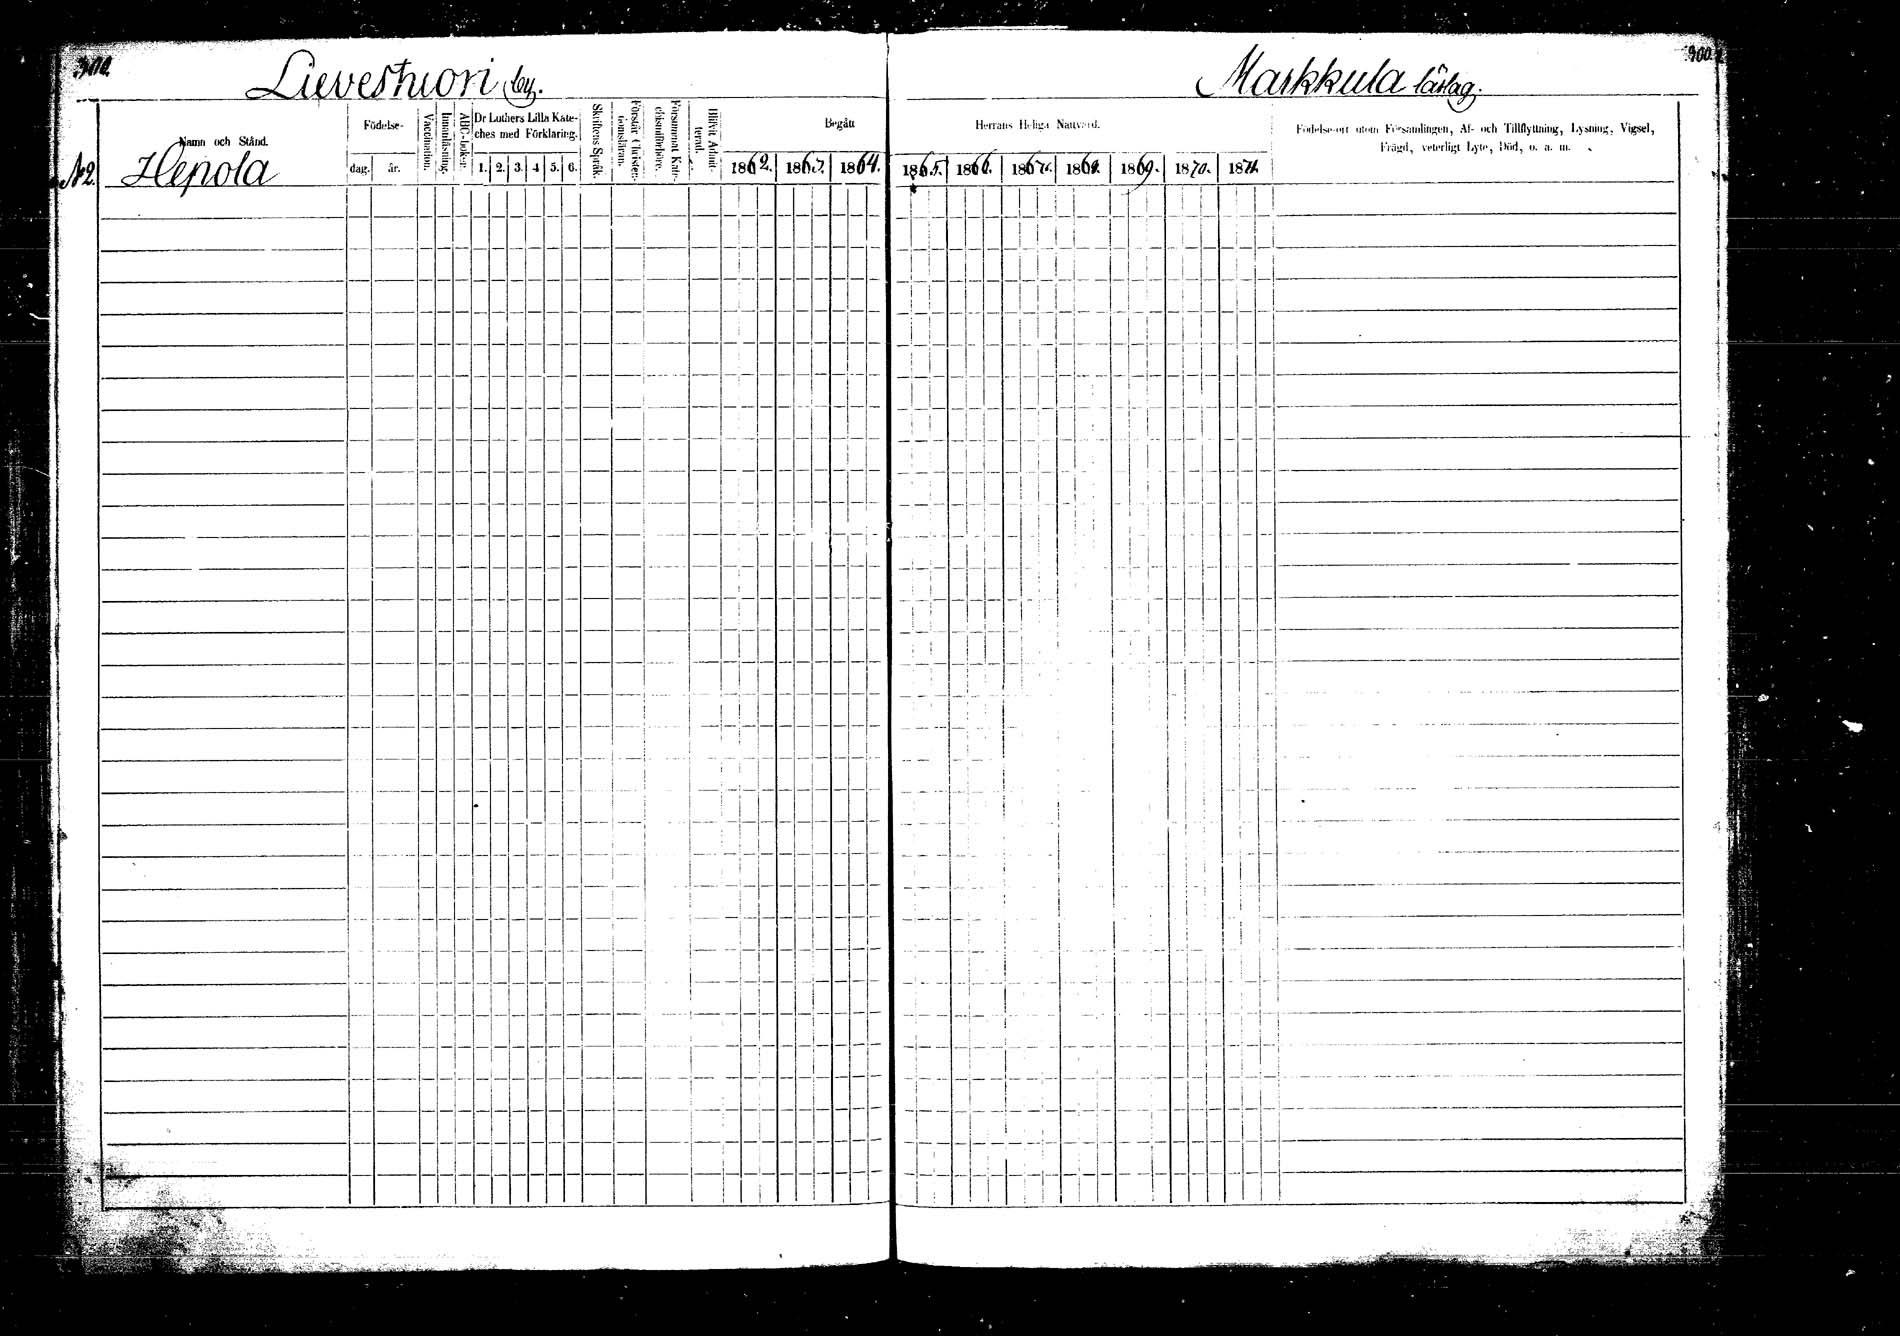 300.
300.
Lievestuori by.
Markkula läslag.
Namn och Stånd.
Födelse-
dag. år.
Vaccination.
Innanläsning.
ABC-boken.
Dr Luthers Lilla Kate-
ches med Förklaring.
1. 2. 3. 4 5. 6.
Skriftens Språk.
Förstår Christen-
domsläran.
Försummat Kate-
chismiförhöre.
Blifvit Admit-
terad.
Begått
1862. 1863. 1864.
Herrans Heliga Nattvard.
1865. 1866. 1867. 1868. 1869. 1870. 1871.
Födelse-ort utom Församlingen, Af- och Tillflyttning, Lysning, Vigsel,
Frägd, veterligt Lyte, Död, o. a. m.
N2. Hepola